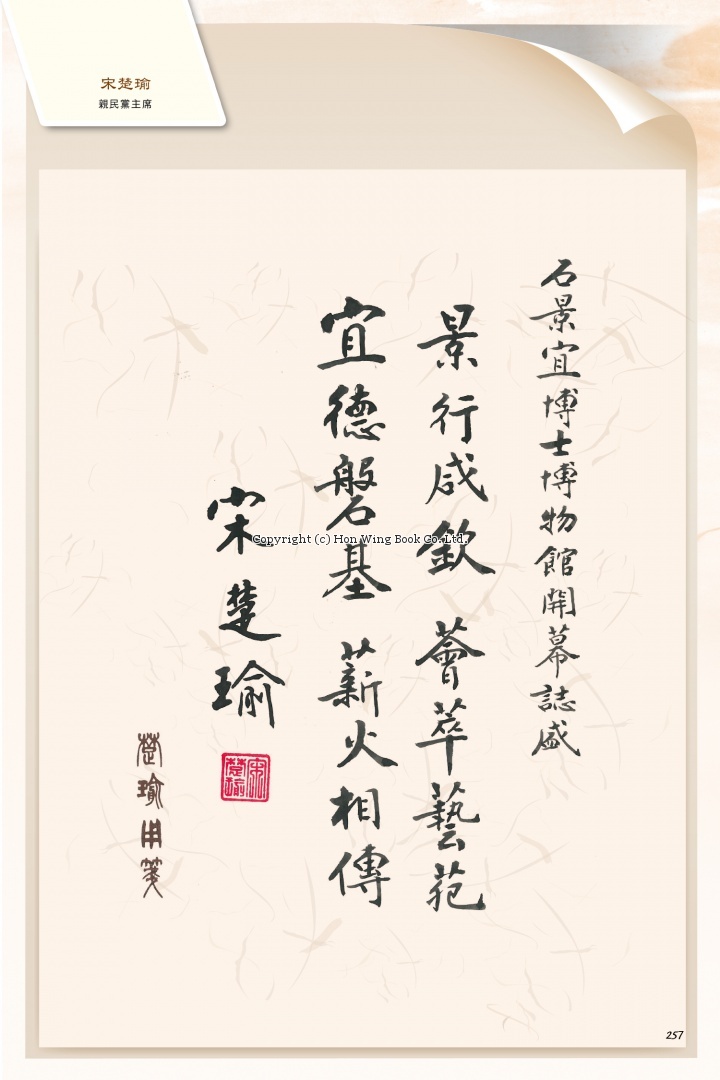 宋楚瑜
親民黨主席
石景宜博士博物館開幕誌盛
景行咸欽 薈萃藝苑
宜德磐基 薪火相傳
宋楚瑜
宋楚瑜
楚瑜用箋
Copyright (c) Hon Wing Book Co. Ltd.
257